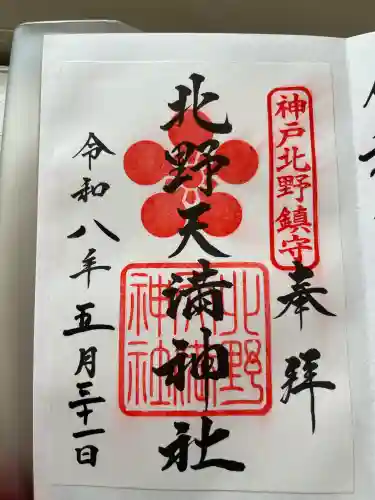 神戸北野鎮守
奉拝
北野天満神社
北野天満神社
令和八年五月三十一日